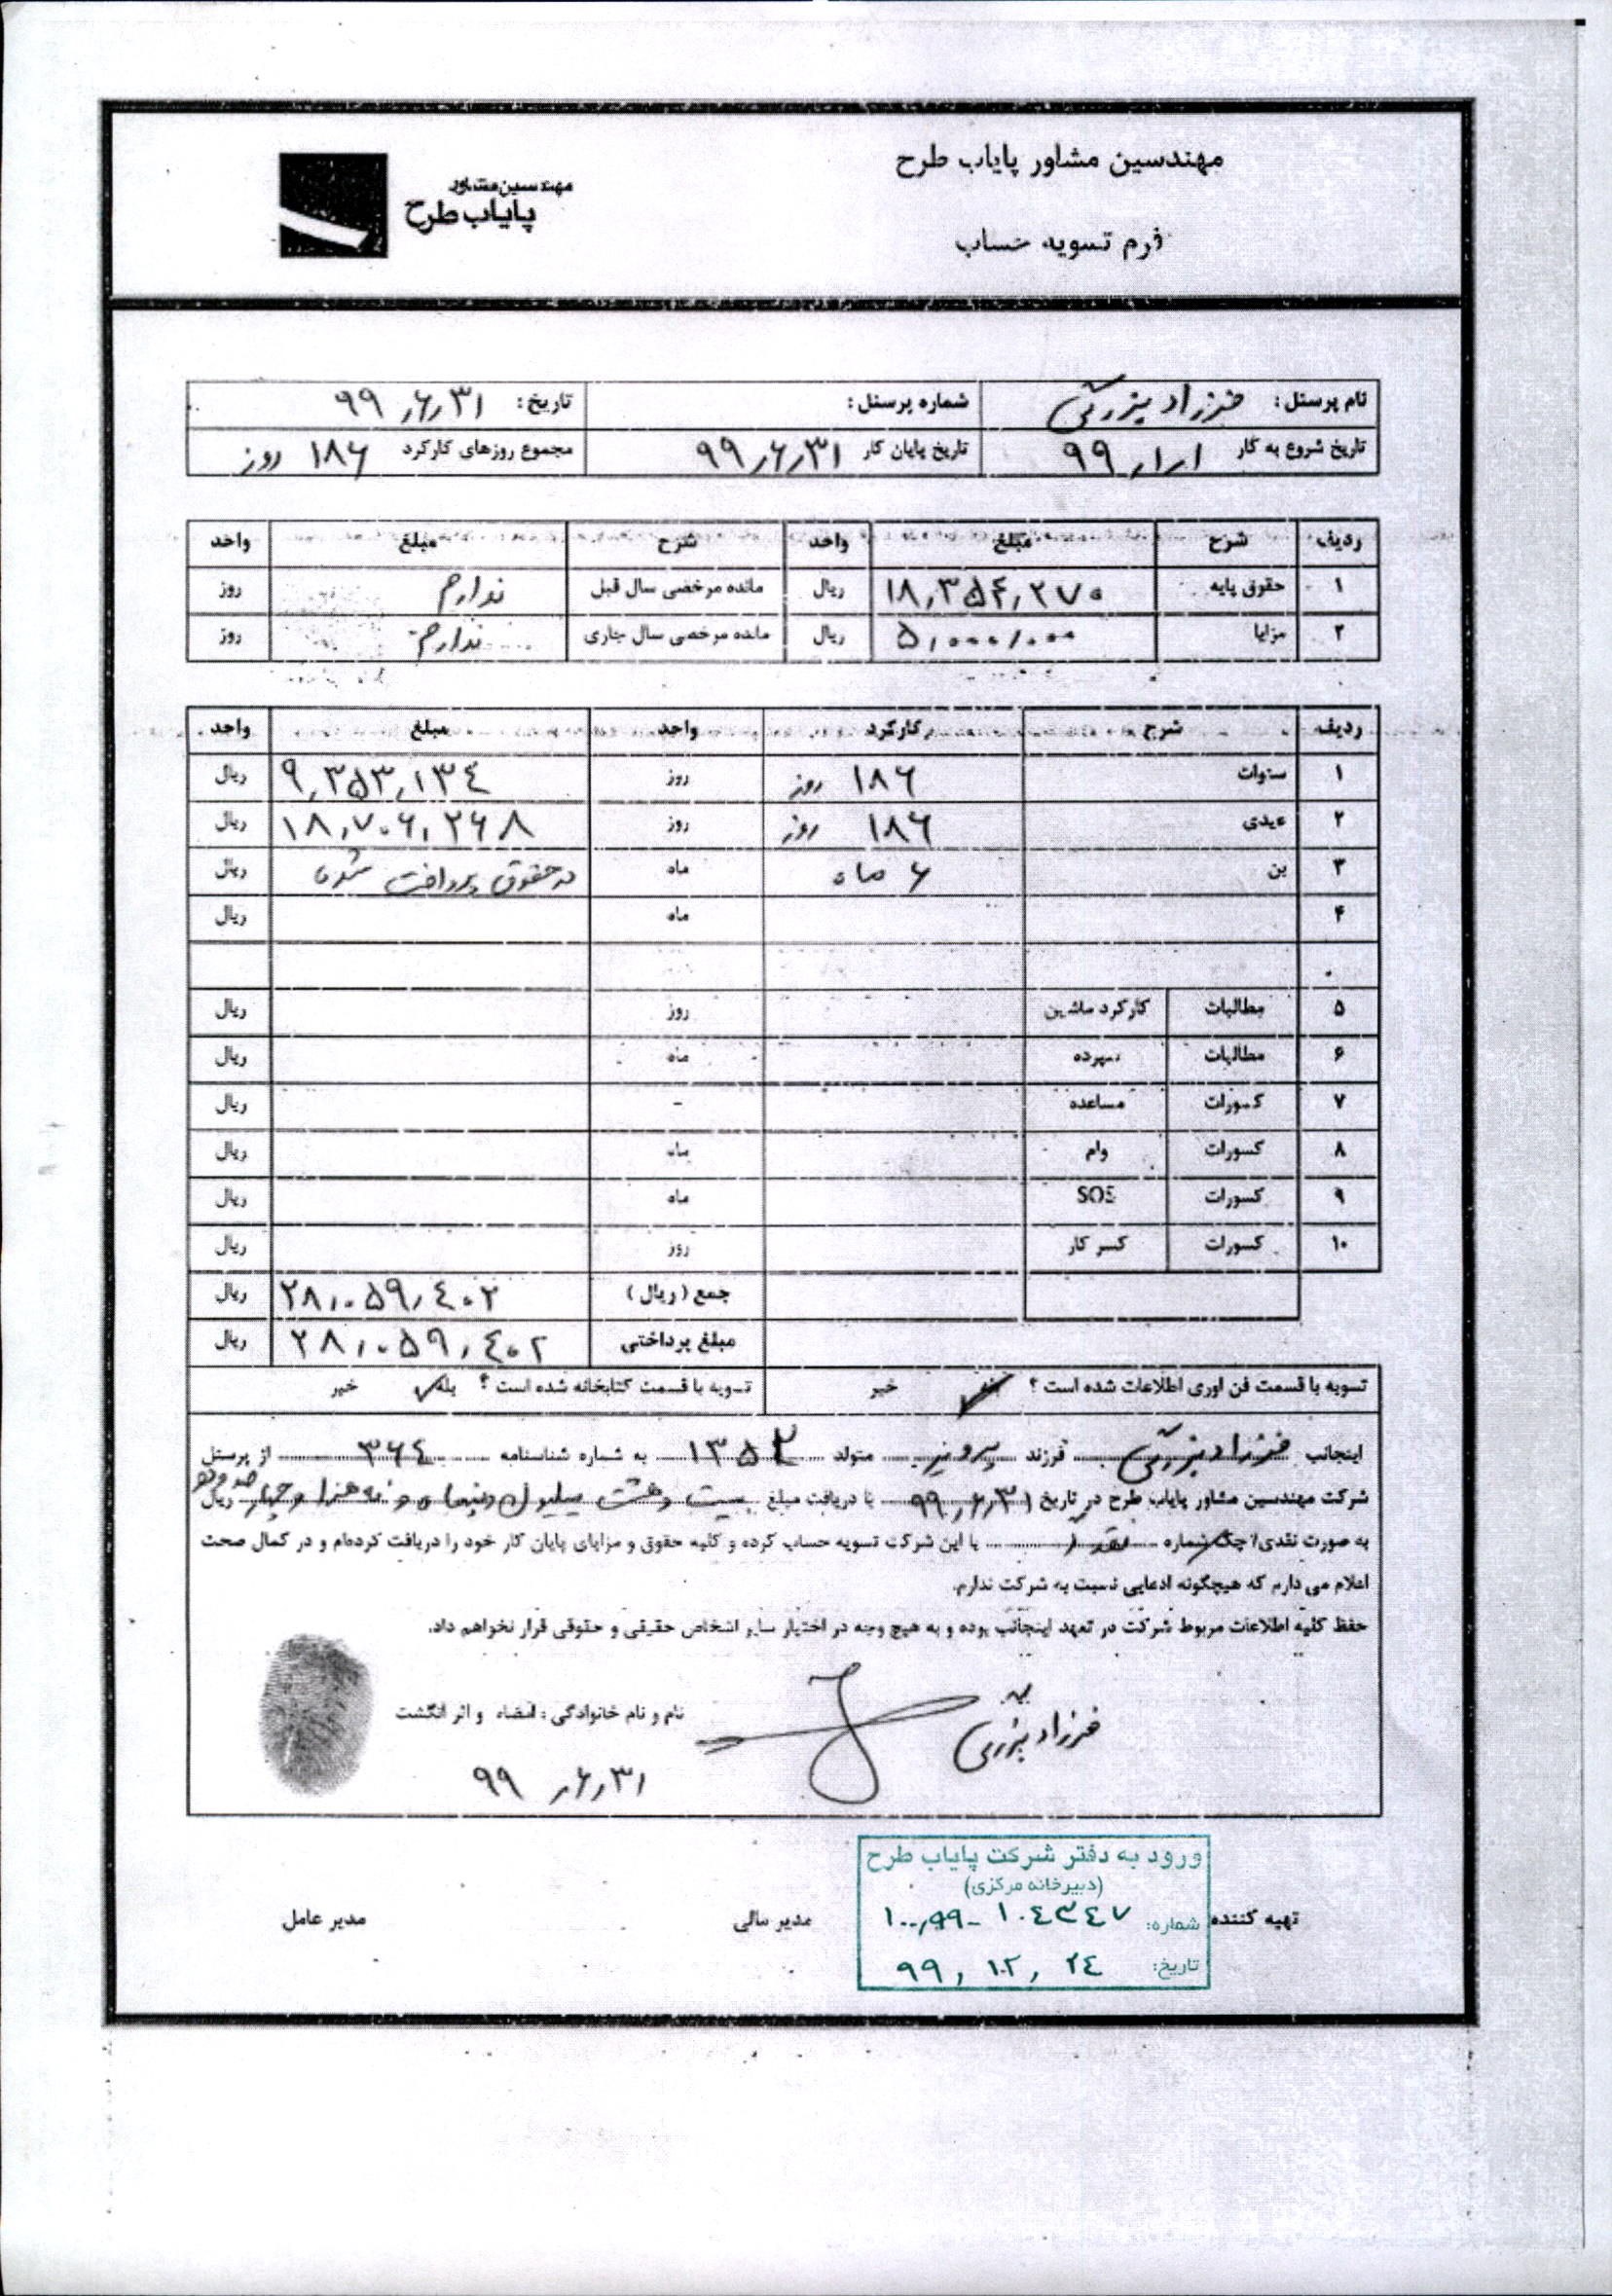 مهندسین مشاور پایاب طرح
مهندسین مشاور
پایاب طرح
فرم تسویه حساب
نام پرسنل: فرزاد شماره پرسنل: تاریخ: ۹۹٫۶٫۳۱
تاریخ شروع به کار ۹۹٫۱٫۱ تاریخ پایان کار ۹۹٫۶٫۳۱ مجموع روزهای کارکرد ۱۸۶ روز
ردیف شرح مبلغ واحد شرح مبلغ واحد
۱ حقوق پایه ۱۸٫۳۵۴٫۲۷۰ ریال مانده مرخصی سال قبل ندارم روز
۲ مزایا ۵٫۰۰۰٫۰۰۰ ریال مانده مرخصی سال جاری ندارم روز
ردیف شرح کارکرد واحد مبلغ واحد
۱ سنوات ۱۸۶ روز روز ۹٫۳۵۳٫۱۳۴ ریال
۲ عیدی ۱۸۶ روز روز ۱۸٫۷۰۶٫۲۶۸ ریال
۳ بن ۶ ماه ماه در حقوق پرداخت شده ریال
۴ ماه ریال
۵ مطالبات کارکرد ماشین روز ریال
۶ مطالبات سپرده ماه ریال
۷ کسورات مساعده - ریال
۸ کسورات وام ماه ریال
۹ کسورات SOS ماه ریال
۱۰ کسورات کسر کار روز ریال
جمع (ریال) ۲۸٫۰۵۹٫۴۰۲ ریال
مبلغ پرداختی ۲۸٫۰۵۹٫۴۰۲ ریال
تسویه با قسمت فن اوری اطلاعات شده است ؟ بله خیر تسویه با قسمت کتابخانه شده است ؟ بله خیر
اینجانب فرزاد فرزند پرویز متولد ۱۳۵۲ به شماره شناسنامه ۳۶۴ از پرسنل
شرکت مهندسین مشاور پایاب طرح در تاریخ ۹۹٫۶٫۳۱ با دریافت مبلغ بیست و هشت میلیون و پنجاه و نه هزار و چهار صد و دو ریال
به صورت نقدی/چک شماره نقد با این شرکت تسویه حساب کرده و کلیه حقوق و مزایای پایان کار خود را دریافت کرده‌ام و در کمال صحت
اعلام می دارم که هیچگونه ادعایی نسبت به شرکت ندارم.
حفظ کلیه اطلاعات مربوط شرکت در تعهد اینجانب بوده و به هیچ وجه در اختیار سایر اشخاص حقیقی و حقوقی قرار نخواهم داد.
فرزاد نام و نام خانوادگی : امضاء و اثر انگشت
۹۹٫۶٫۳۱
ورود به دفتر شرکت پایاب طرح
(دبیرخانه مرکزی)
تهیه کننده شماره: ۱۰۰٫۹۹-۱۰۴۳۴۷ مدیر مالی مدیر عامل
تاریخ: ۹۹٫۱۲٫۲۴